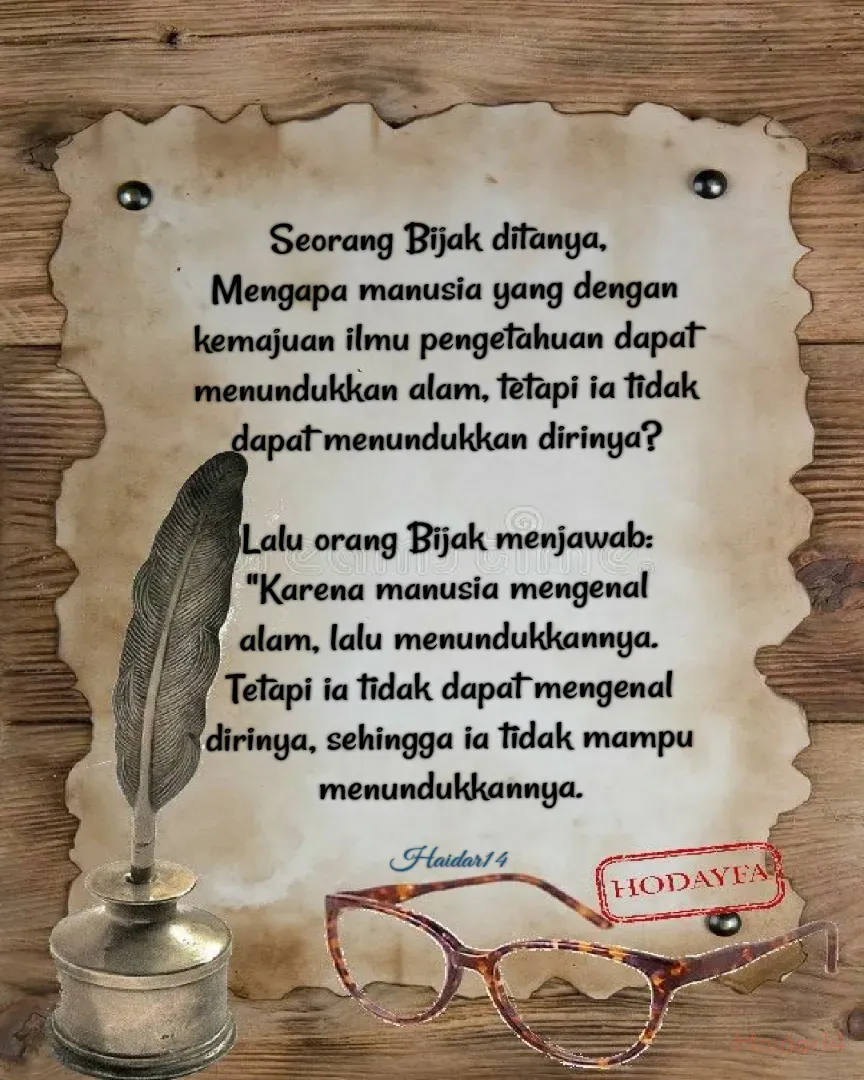 Seorang Bijak ditanya,
Mengapa manusia yang dengan
kemajuan ilmu pengetahuan dapat
menundukkan alam, tetapi ia tidak
dapat menundukkan dirinya?
Lalu orang Bijak menjawab:
"Karena manusia mengenal
alam, lalu menundukkannya.
Tetapi ia tidak dapat mengenal
dirinya, sehingga ia tidak mampu
menundukkannya.
Haidar14
HODAYFA